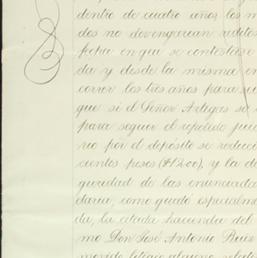 dentro de cuatro años, los m
dos no devengarian reditos
fecha en qu se contestase
da y desde la misma em
correr los tres años para su
que si el Señor Artigas se
para seguir el repetido jui
rio por el depósito se reduci
cientos pesos ($1200), y la d
guridad de las enunciada
daria, como quedó especialm
da, la citada hacienda del
mo Don José Antonio Ruiz
movido litigio alguno